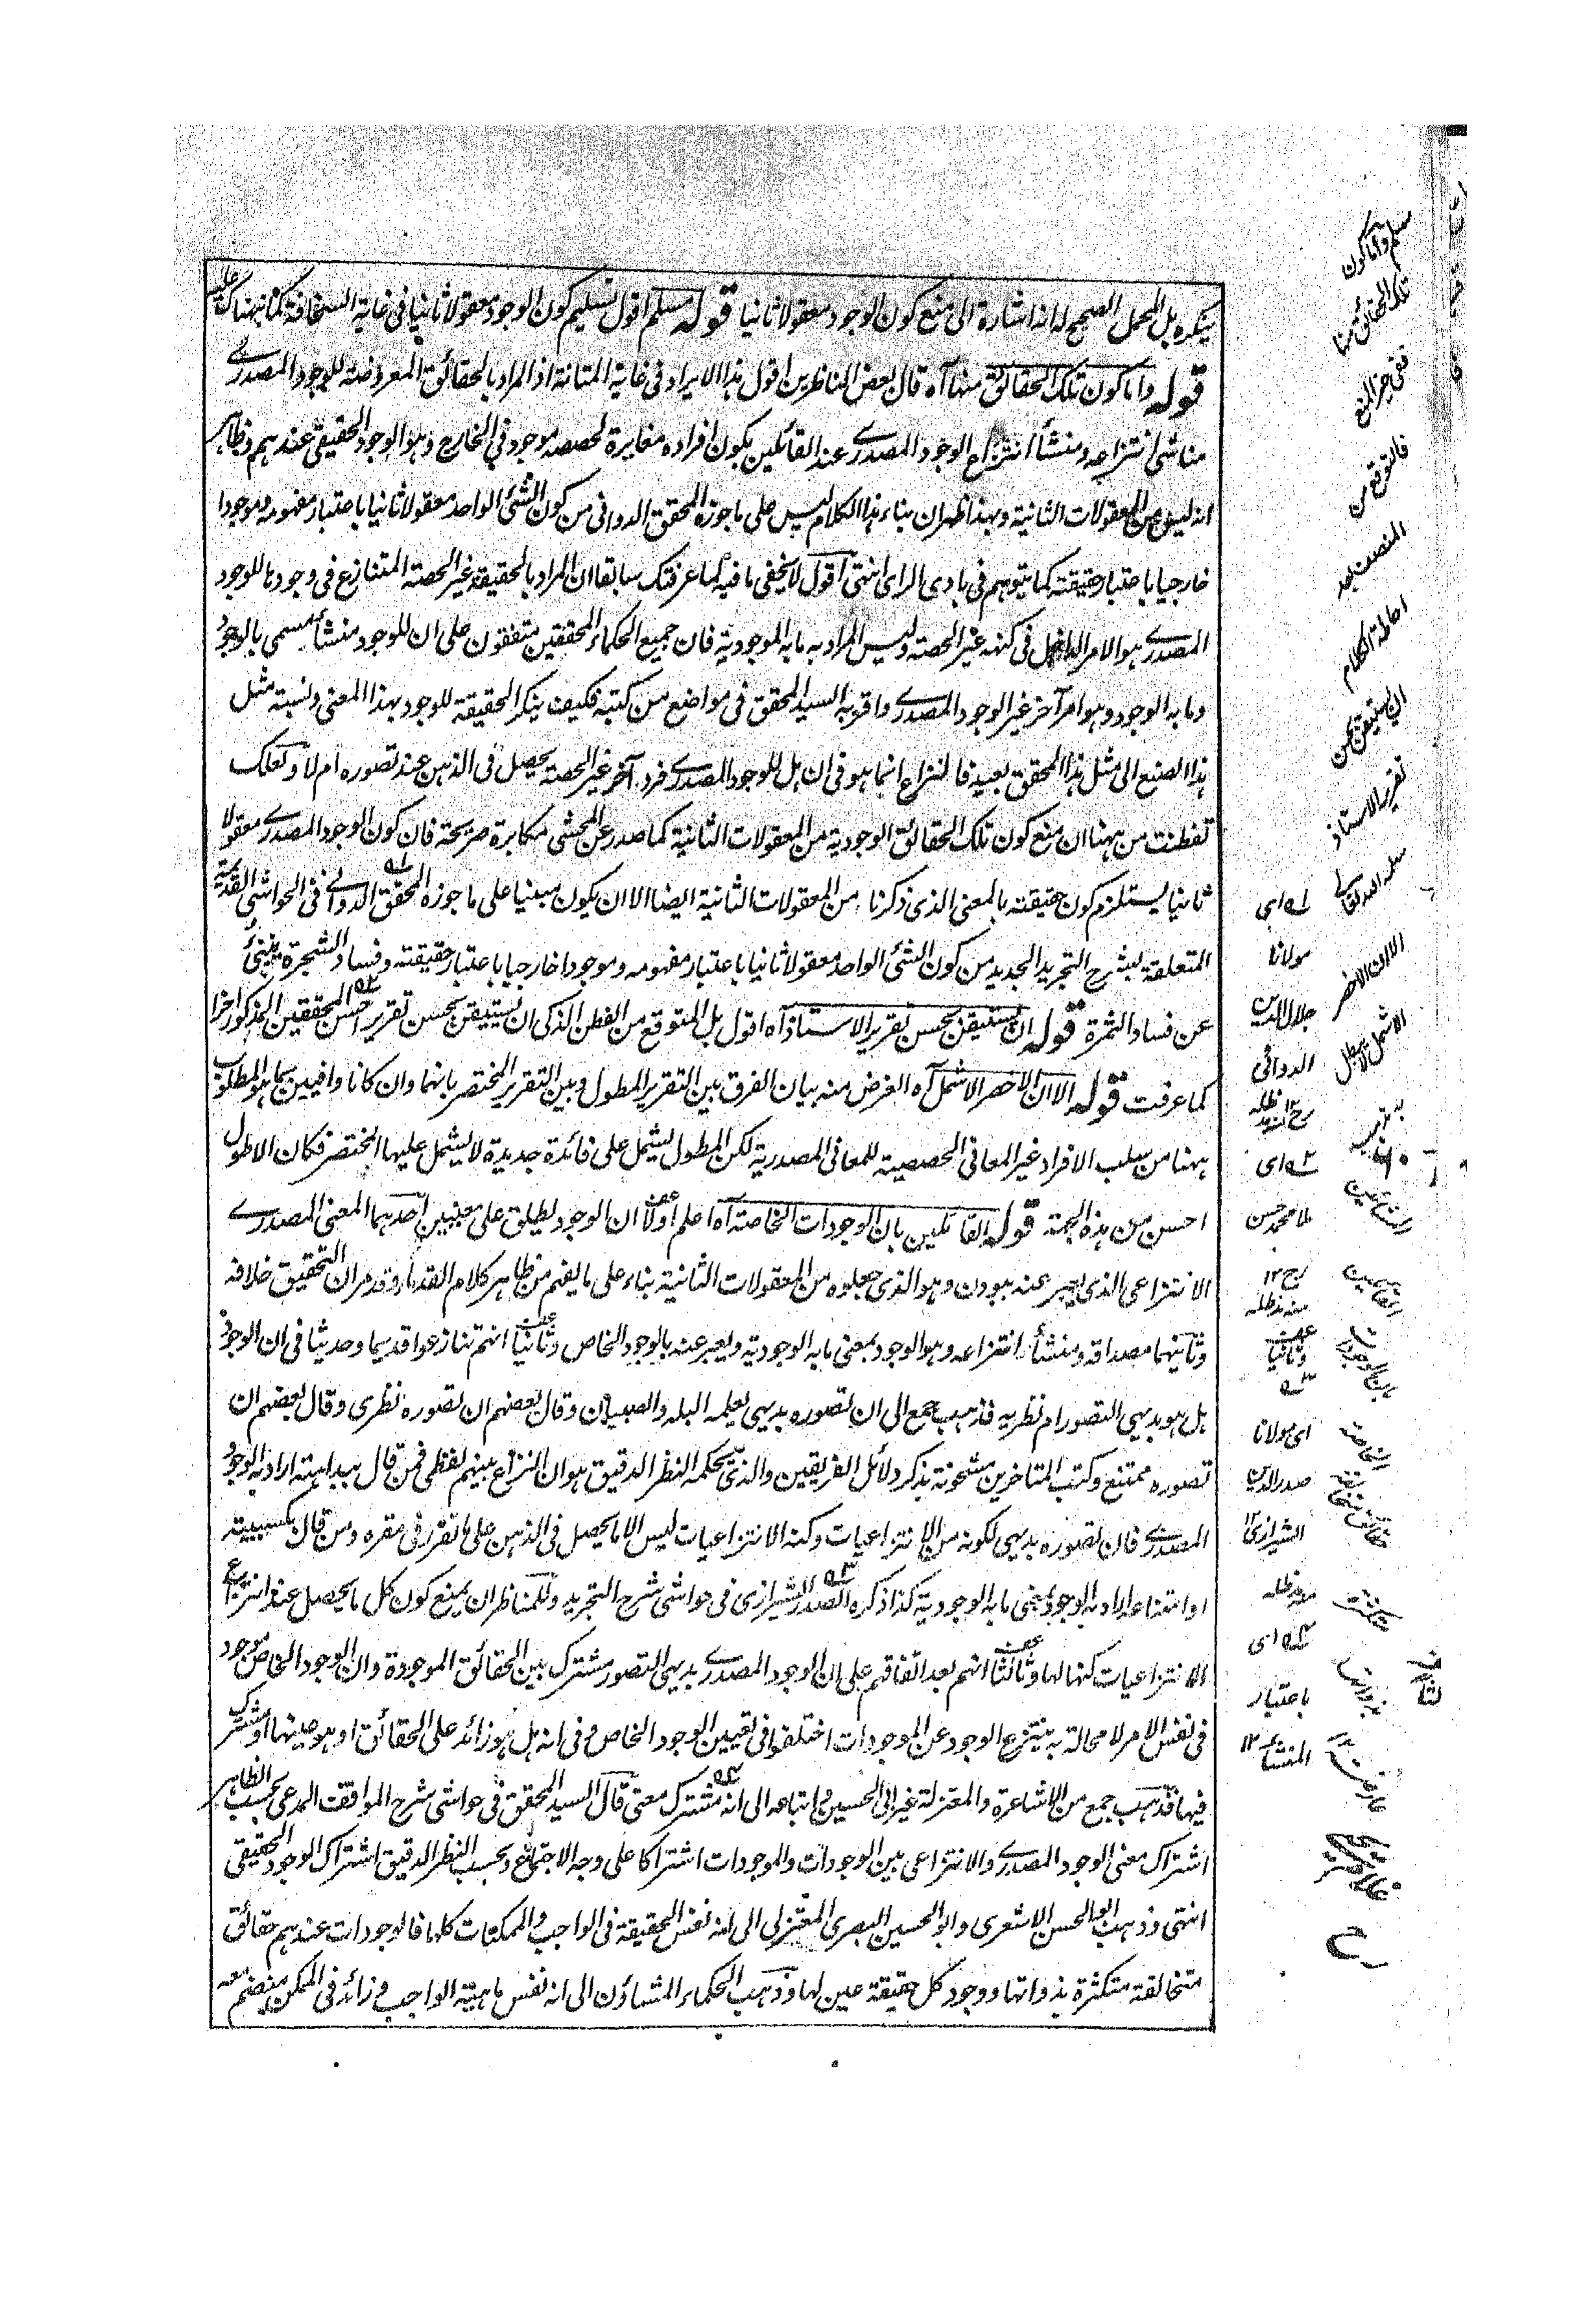 ينكره بل المحمل الصحيح له انه اشارة الى منع كون الوجود معقولا ثانيا قوله مسلم اقول تسليم كون الوجود معقولا ثانيا فى غاية السخافة كما نبهناك عليه
قوله واما كون تلك الحقائق منها آه قال بعض الناظرين اقول هذا الايراد فى غاية المتانة اذ المراد بالحقائق المعروضة للوجود المصدرى
مناشى انتزاعه ومنشأ انتزاع الوجود المصدرى عند القائلين بكون افراده مغايرة لحصصه موجود فى الخارج وهو الوجود الحقيقى عندهم وظاهر
انه ليس من المعقولات الثانية وبهذا ظهر ان بناء هذا الكلام ليس على ما جوزه المحقق الدوانى من كون الشئ الواحد معقولا ثانيا باعتبار مفهومه وموجودا
خارجيا باعتبار حقيقته كما يتوهم فى بادى الراى انتهى اقول لا يخفى ما فيه كما عرفتك سابقا ان المراد بالحقيقة غير الحصة المتنازع فى وجودها للوجود
المصدرى هو الامر الداخل فى كنهه غير الحصة وليس المراد به ما به الموجودية فان جميع الحكماء المحققين متفقون على ان للوجود منشأ يسمى بالوجود
وما به الوجود وهو امر آخر غير الوجود المصدرى واقر به السيد المحقق فى مواضع من كتبه فكيف ينكر الحقيقة للوجود بهذا المعنى ونسبة مثل
هذا الصنيع الى مثل هذا المحقق بعيد فالنزاع انما هو فى ان هل للوجود المصدرى فرد آخر غير الحصة يحصل فى الذهن عند تصوره ام لا ولعلك
تفطنت من ههنا ان منع كون تلك الحقائق الوجودية من المعقولات الثانية كما صدر عن المحشى مكابرة صريحة فان كون الوجود المصدرى معقولا
ثانيا يستلزم كون حقيقته بالمعنى الذى ذكرنا من المعقولات الثانية ايضا الا ان يكون مبنيا على ما جوزه المحقق الدوانى فى الحواشى القديمة
المتعلقة بشرح التجريد الجديد من كون الشئ الواحد معقولا ثانيا باعتبار مفهومه وموجودا خارجيا باعتبار حقيقته وفساد الشجرة ينبئ
عن فساد الثمرة قوله ان يستيقن بحسن تقرير الاستاذ آه اقول بل المتوقع من الفطن الذكى ان يستيقن بحسن تقرير احسن المحققين المذكور آخرا
كما عرفت قوله الا ان الاخصر الاشمل آه الغرض منه بيان الفرق بين التقرير المطول وبين التقرير المختصر بانهما وان كانا وافيين بما هو المطلوب
ههنا من سلب الافراد غير المعانى الحصصية للمعانى المصدرية لكن المطول يشمل على فائدة جديدة لا يشمل عليها المختصر فكان الاطول
احسن من هذه الجهة قوله القائلين بان الوجودات الخاصة آه اعلم اولا ان الوجود يطلق على معنيين احدهما المعنى المصدرى
الانتزاعى الذى يعبر عنه ببودن وهو الذى جعلوه من المعقولات الثانية بناء على ما يفهم من ظاهر كلام القدماء وقد مر ان التحقيق خلافه
وثانيهما مصداقه ومنشأ انتزاعه وهو الوجود بمعنى ما به الوجودية ويعبر عنه بالوجود الخاص وثانيا انهم تنازعوا قديما وحديثا فى ان الوجود
هل هو بديهى التصور ام نظريه فذهب جمع الى ان تصوره بديهى يعلمه البله والصبيان وقال بعضهم ان تصوره نظرى وقال بعضهم ان
تصوره ممتنع وكتب المتاخرين مشحونة بذكر دلائل الفريقين والذى يحكمه النظر الدقيق هو ان النزاع بينهم لفظى فمن قال ببداهته اراد به الوجود
المصدرى فان تصوره بديهى لكونه من الانتزاعيات وكنه الانتزاعيات ليس الا ما يحصل فى الذهن على ما تقرر فى مقره ومن قال بكسبيته
او امتناعه اراد به الوجود بمعنى ما به الوجودية كذا ذكره الصدر الشيرازى فى حواشى شرح التجريد وللمناظر ان يمنع كون كل ما يحصل عند انتزاع
الانتزاعيات كنها لها وثالثا انهم بعد اتفاقهم على ان الوجود المصدرى بديهى التصور مشترك بين الحقائق الموجودة وان الوجود الخاص موجود
فى نفس الامر لا محالة به ينتزع الوجود عن الموجودات اختلفوا فى تعيين الوجود الخاص وفى انه هل هو زائد على الحقائق او هو عينها او مشترك
فيها فذهب جمع من الاشاعرة والمعتزلة غير ابى الحسين واتباعه الى انه مشترك معنى قال السيد المحقق فى حواشى شرح المواقف المدعى بحسب الظاهر
اشتراك معنى الوجود المصدرى والانتزاعى بين الوجودات والموجودات اشتراكا على وجه الاجتماع وبحسب النظر الدقيق اشتراك الوجود الحقيقى
انتهى وذهب ابو الحسن الاشعرى وابو الحسين البصرى المعتزلى الى انه نفس الحقيقة فى الواجب والممكنات كلها فالوجودات عندهم حقائق
متخالفة متكثرة بذواتها ووجود كل حقيقة عين لها وذهب الحكماء المشاؤن الى انه نفس ماهية الواجب وزائد فى الممكن منضم معه
اى
مولانا
جلال الدين
الدوانى
اى
ملا محمد حسن
رح ١٢
منه مد ظله
وثانيا
اى مولانا
صدر الدين
الشيرازى ١٢
منه مد ظله
اى
باعتبار
المنشأ ١٢
مسلم واما كون
تلك الحقائق منها
ففى حيز المنع
فالمتوقع من
المنصف بعد
احاطة الكلام
ان يستيقن بحسن
تقرير الاستاذ
سلمه الله تعالى
الا ان الاخصر
القائلين
بان الوجودات
الخاصة
حقائق متخالفة
متكثرة
بذواتها